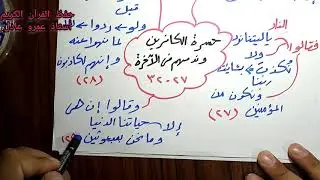 حفظ القرآن الكريم
استاذ عمرو عادل
قبل
ولو ردوا
لما نهوا عنه
وإنهم لكاذبون
(٢٨)
حسرة الكافرين
وندمهم في الآخرة
٢٧-٣٢
النار
فقالوا
يا ليتنا نرد
ولا
نكذب بآيات
ربنا
ونكون من
المؤمنين (٢٧)
وقالوا إن هي
إلا حياتنا الدنيا
وما نحن بمبعوثين